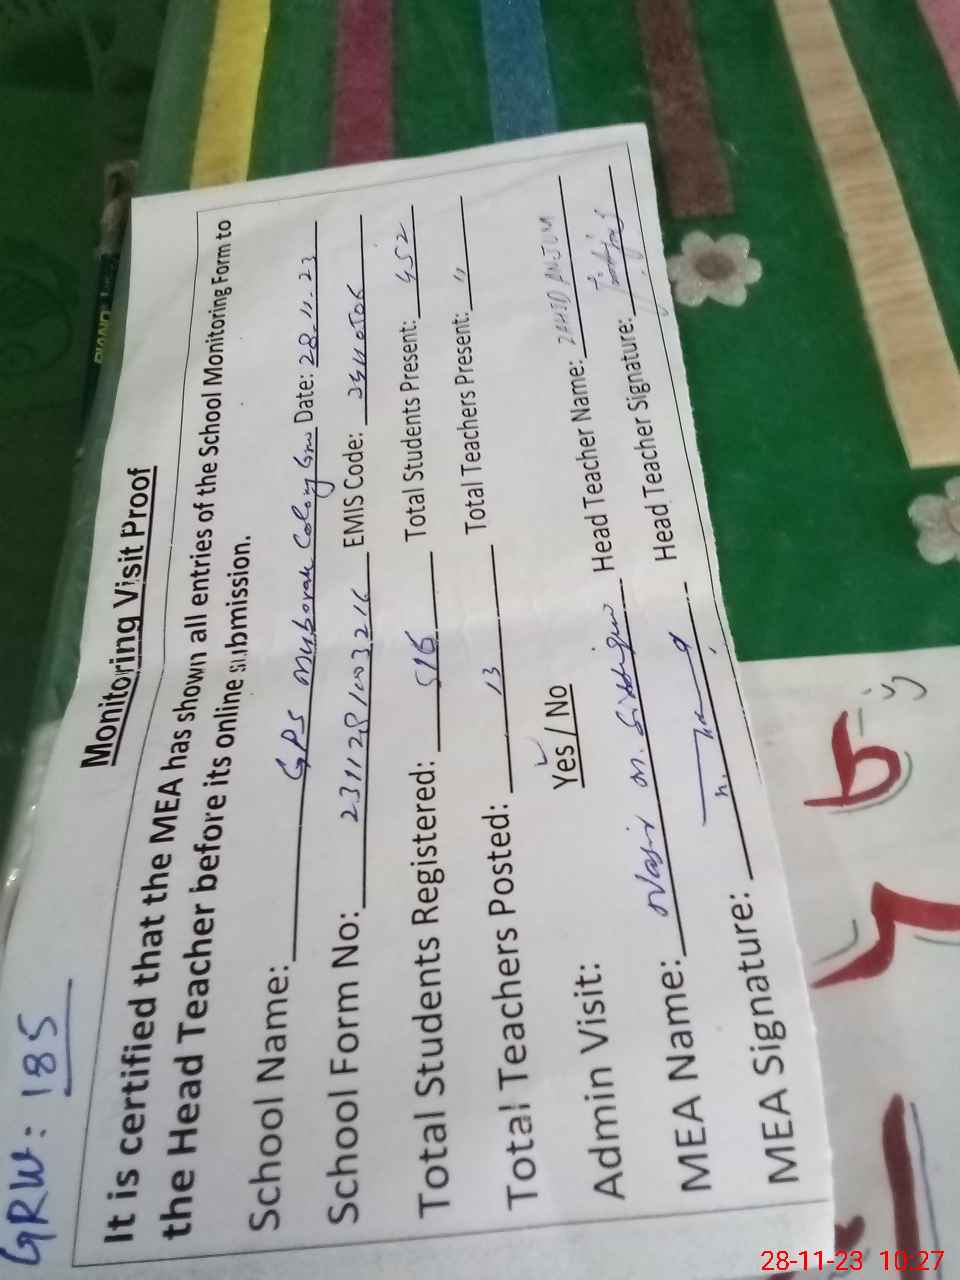 GRW: 185
Monitoring Visit Proof
It is certified that the MEA has shown all entries of the School Monitoring Form to
the Head Teacher before its online submission.
School Name: GPS Mubarak Colony Grw Date: 28-11-23
School Form No: EMIS Code:
Total Students Registered: 516 Total Students Present: 452
Total Teachers Posted: 13 Total Teachers Present: "
Admin Visit: Yes / No Head Teacher Name: ZAHID ANJUM
MEA Name: Nasir M. Head Teacher Signature:
MEA Signature:
28-11-23 10:27